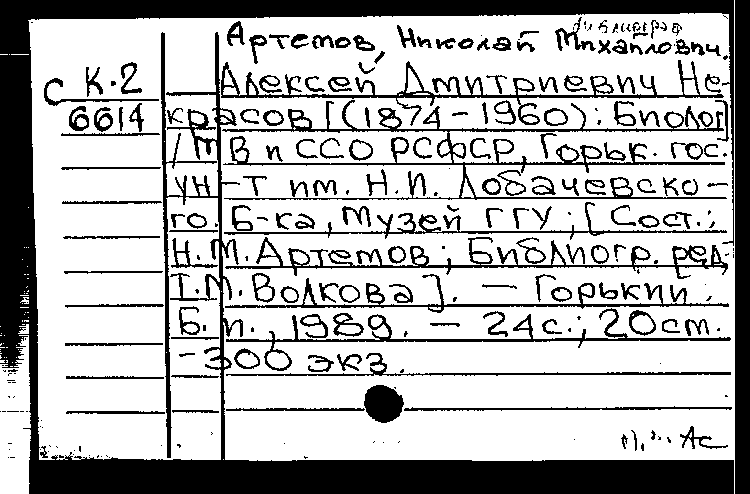 библиограф
Артемов, Николай Михайлович.
С К-2
6614
Алексей Дмитриевич Не-
красов [(1874-1960): Биолог]
/ М В и ССО РСФСР, Горьк. гос.
ун-т им. Н.И. Лобачевско-
го. Б-ка, Музей ГГУ; [Сост.:
Н.М. Артемов; Библиогр. ред.
Т.М. Волкова]. — Горький:
Б. и., 1989. — 24 с.; 20 см.
-300 экз.